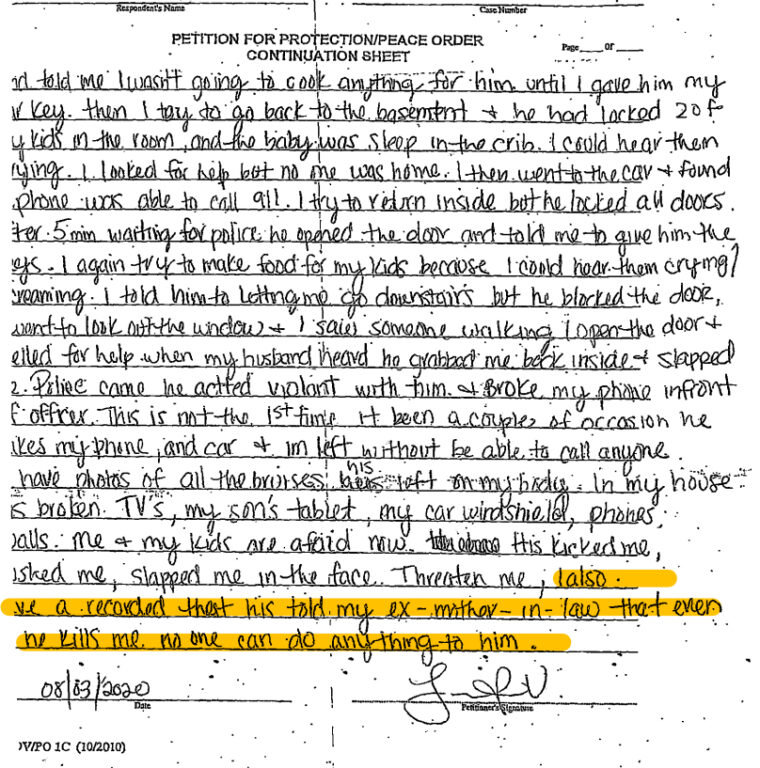 Respondent's Name Case Number
PETITION FOR PROTECTION/PEACE ORDER
CONTINUATION SHEET
Page ___ of ___
told me I wasn't going to cook anything for him until I gave him my
key. then I try to go back to the basement & he had locked 2 of
kids in the room, and the baby was sleep in the crib. I could hear them
ying. I looked for help but no one was home. I then went to the car & found
phone was able to call 911. I try to return inside but he locked all doors.
ter 5 min waiting for police he opened the door and told me to give him the
eys. I again try to make food for my kids because I could hear them crying/
reaming. I told him to letting me go downstairs but he blocked the door,
went to look out the window & I saw someone walking I open the door &
elled for help when my husband heard he grabbed me back inside & slapped
Police came he actted violant with him & Broke my phone infront
f officer. This is not the 1st time it been a couple of occasion he
kes my phone, and car & im left without be able to call anyone.
have photos of all the bruises his left on my body. In my house
s broken. TV's, my son's tablet, my car windshield, phones,
alls. me & my kids are afraid now. His kicked me,
me, slapped me in the face. Threaten me, I also
ve a recorded that his told my ex-mother-in-law that even
he kills me no one can do anything to him.
08/03/2020
Date Petitioner's Signature
DV/PO 1C (10/2010)